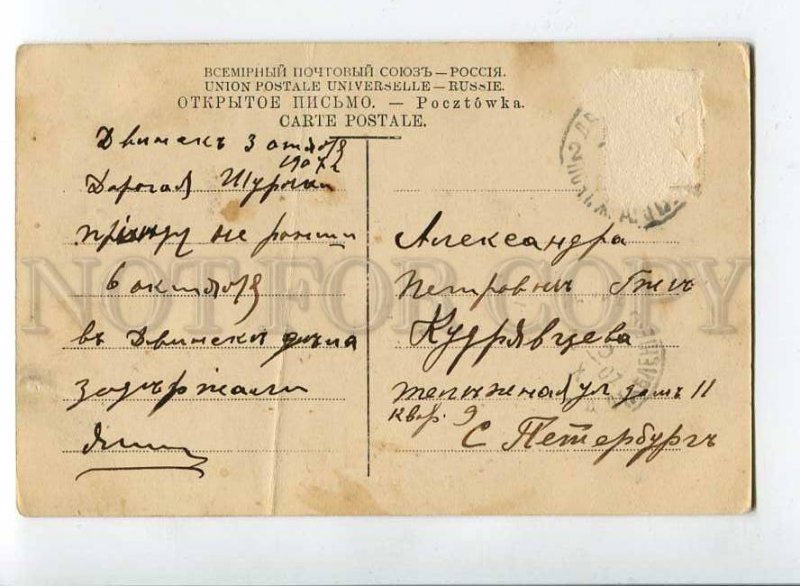 ВСЕМІРНЫЙ ПОЧТОВЫЙ СОЮЗЪ — РОССІЯ.
UNION POSTALE UNIVERSELLE — RUSSIE.
ОТКРЫТОЕ ПИСЬМО. — Pocztówka.
CARTE POSTALE.
Двинскъ 3 октября
1907 г
Дорогая Шурочка
приѣду не раньше
6 октября
въ Двинскѣ дѣла
задержали
Александра
Петровнѣ
Кудрявцева
ул домъ 11
квар. 9
С Петербургъ
NOT FOR COPY